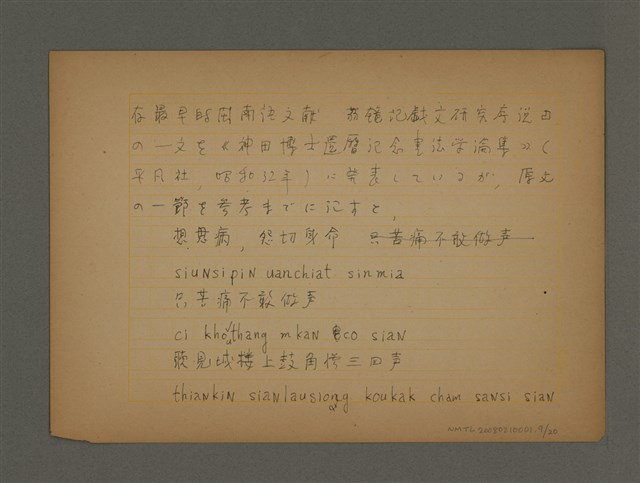 存最早的閩南語文献　茘鏡記戯文研究序说由
の一文を《神田博士還暦記念書誌学論集》(
平凡社，昭和32年)に発表しているが，原文
の一節を参考までに記すと，
想思病，怨切身命　只苦痛不敢做声
siuNsipiN uanchiat sinmia
只苦痛不敢做声
ci khouthang mkaN co siaN
听見城楼上鼓角惨三四声
thiaNkiN siaNlausiong koukak cham saNsi siaN
NMTL 20050210001.9/20